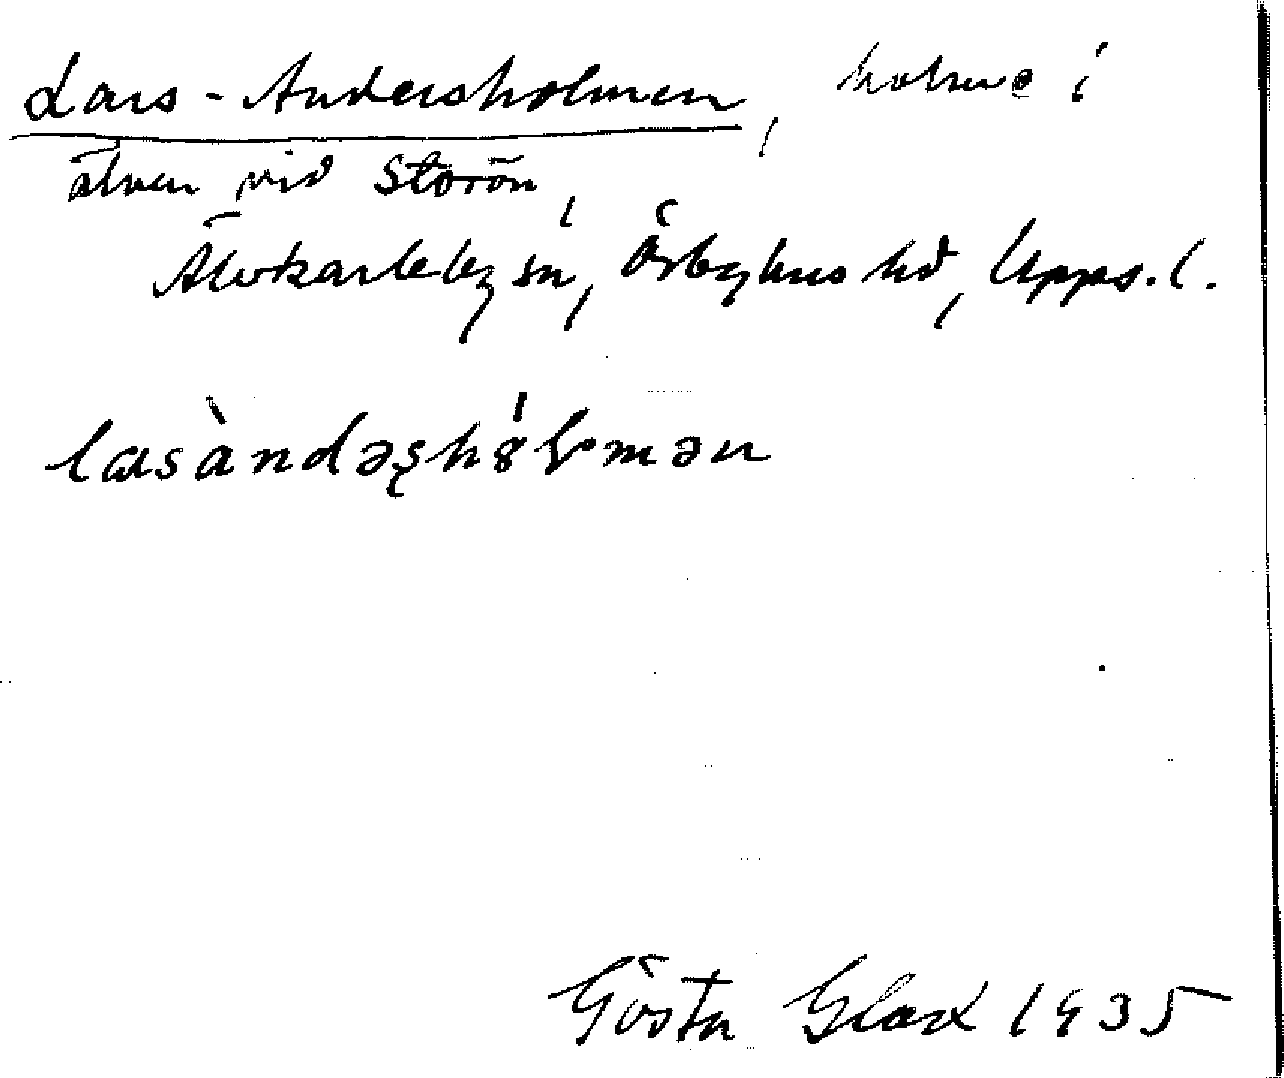 Lars-Andersholmen, holme i
älven vid Storön,
Älvkarleby sn, Örbyhus hd, Upps. l.
Gösta Glad 1935